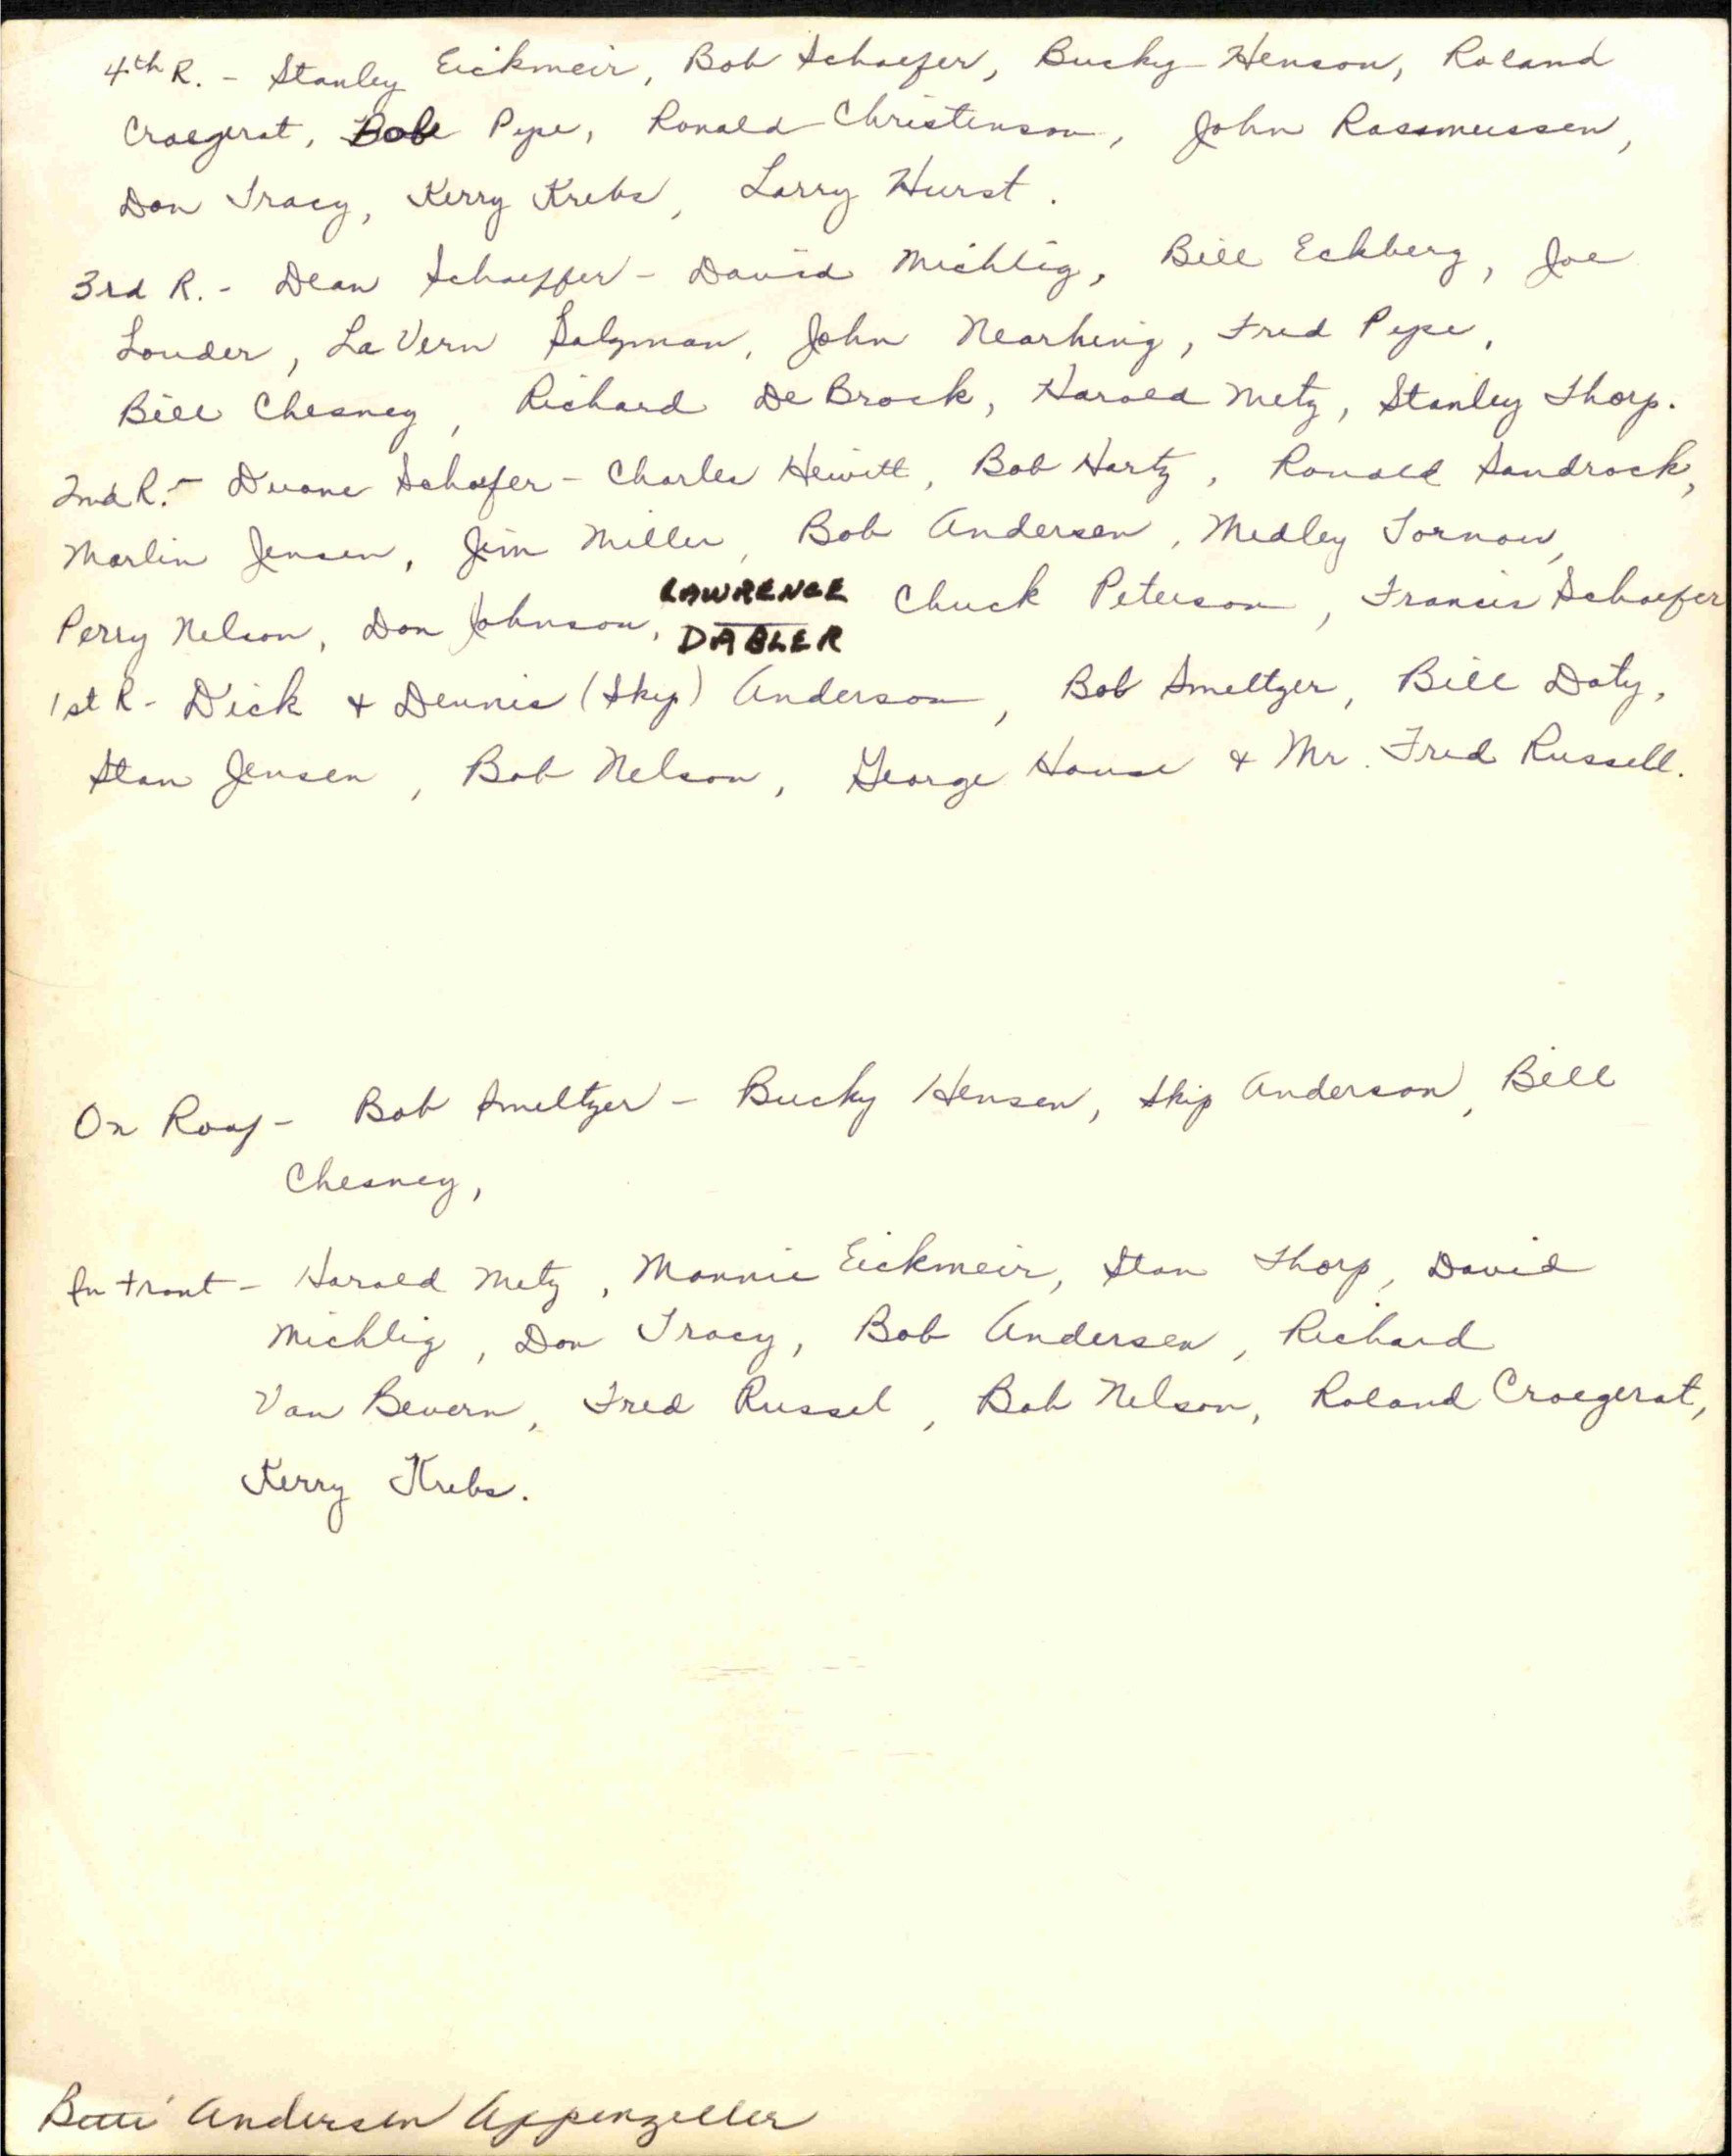 4th R. - Stanley Eickmeir, Bob Schaefer, Bucky Henson, Roland
Craegerat, Bob Pype, Ronald Christenson, John Rassmussen,
Don Tracy, Kerry Krebs, Larry Hurst.
3rd R. - Dean Schaeffer - David Michlig, Bill Eckberg, Joe
Louder, La Vern Salzman, John Nearhing, Fred Pype,
Bill Chesney, Richard De Brock, Harold Metz, Stanley Thorp.
2nd R. - Duane Schafer - Charles Hewitt, Bob Hartz, Ronald Sandrock,
Marlin Jensen, Jim Miller, Bob Andersen, Medley Tornow,
Perry Nelson, Don Johnson, LAWRENCE DABLER Chuck Peterson, Francis Schaefer
1st R - Dick & Dennis (Skip) Anderson, Bob Smeltzer, Bill Doty,
Stan Jensen, Bob Nelson, George House & Mr. Fred Russell.
On Roof - Bob Smeltzer - Bucky Hensen, Skip Anderson, Bill
Chesney,
In Front - Harold Metz, Mannie Eickmeir, Stan Thorp, David
Michlig, Don Tracy, Bob Andersen, Richard
Van Bevern, Fred Russel, Bob Nelson, Roland Craegerat,
Kerry Krebs.
Andersen Appenzeller